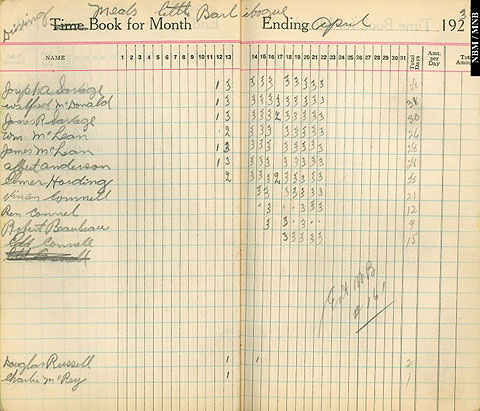 Dining Meals
Time Book for Month Ending April 192
NAME 1 2 3 4 5 6 7 8 9 10 11 12 13 14 15 16 17 18 19 20 21 22 23 24 25 26 27 28 29 30 31 Total Days Amt. per Day
Joseph A Savage 1 3 3 3 3 3 3 3 3 3
Wilfred McDonald 1 3 3 3 3 3 3 3 3 3
James R Savage 1 3 3 3 3 2 3 3 3 3 3 30
Wm McLean 2 3 3 3 3 3 3 3 3 26
James McLean 1 3 3 3 3 3 3 3 3 3 28
Albert Anderson 1 3 3 3 3 3 3 3 3 3 28
Elmer Harding 2 3 3 3 2 3 3 3 3 3
Connell 3 3 3 3 3 3 3 21
Ren Connel 3 3 3 3 12
Robert Beaubeau 3 3 3 9
Connell 3 3 3 3 3 15
Ent MB
# 161
Douglas Russell 1 1 2
Charlie McRey 1 1
NBM / MNB